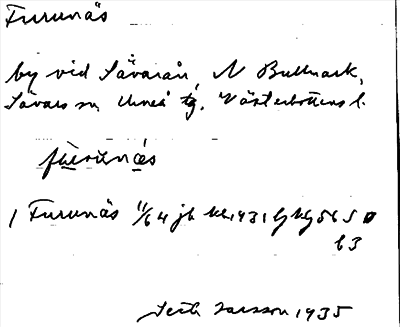 Furunäs
by vid Sävarån, N Bullmark,
Sävars sn Umeå tg. Västerbottens l.
fùrunǟs
1 Furunäs 11/64 jb kb 1931 lj
63
Larsson 1935